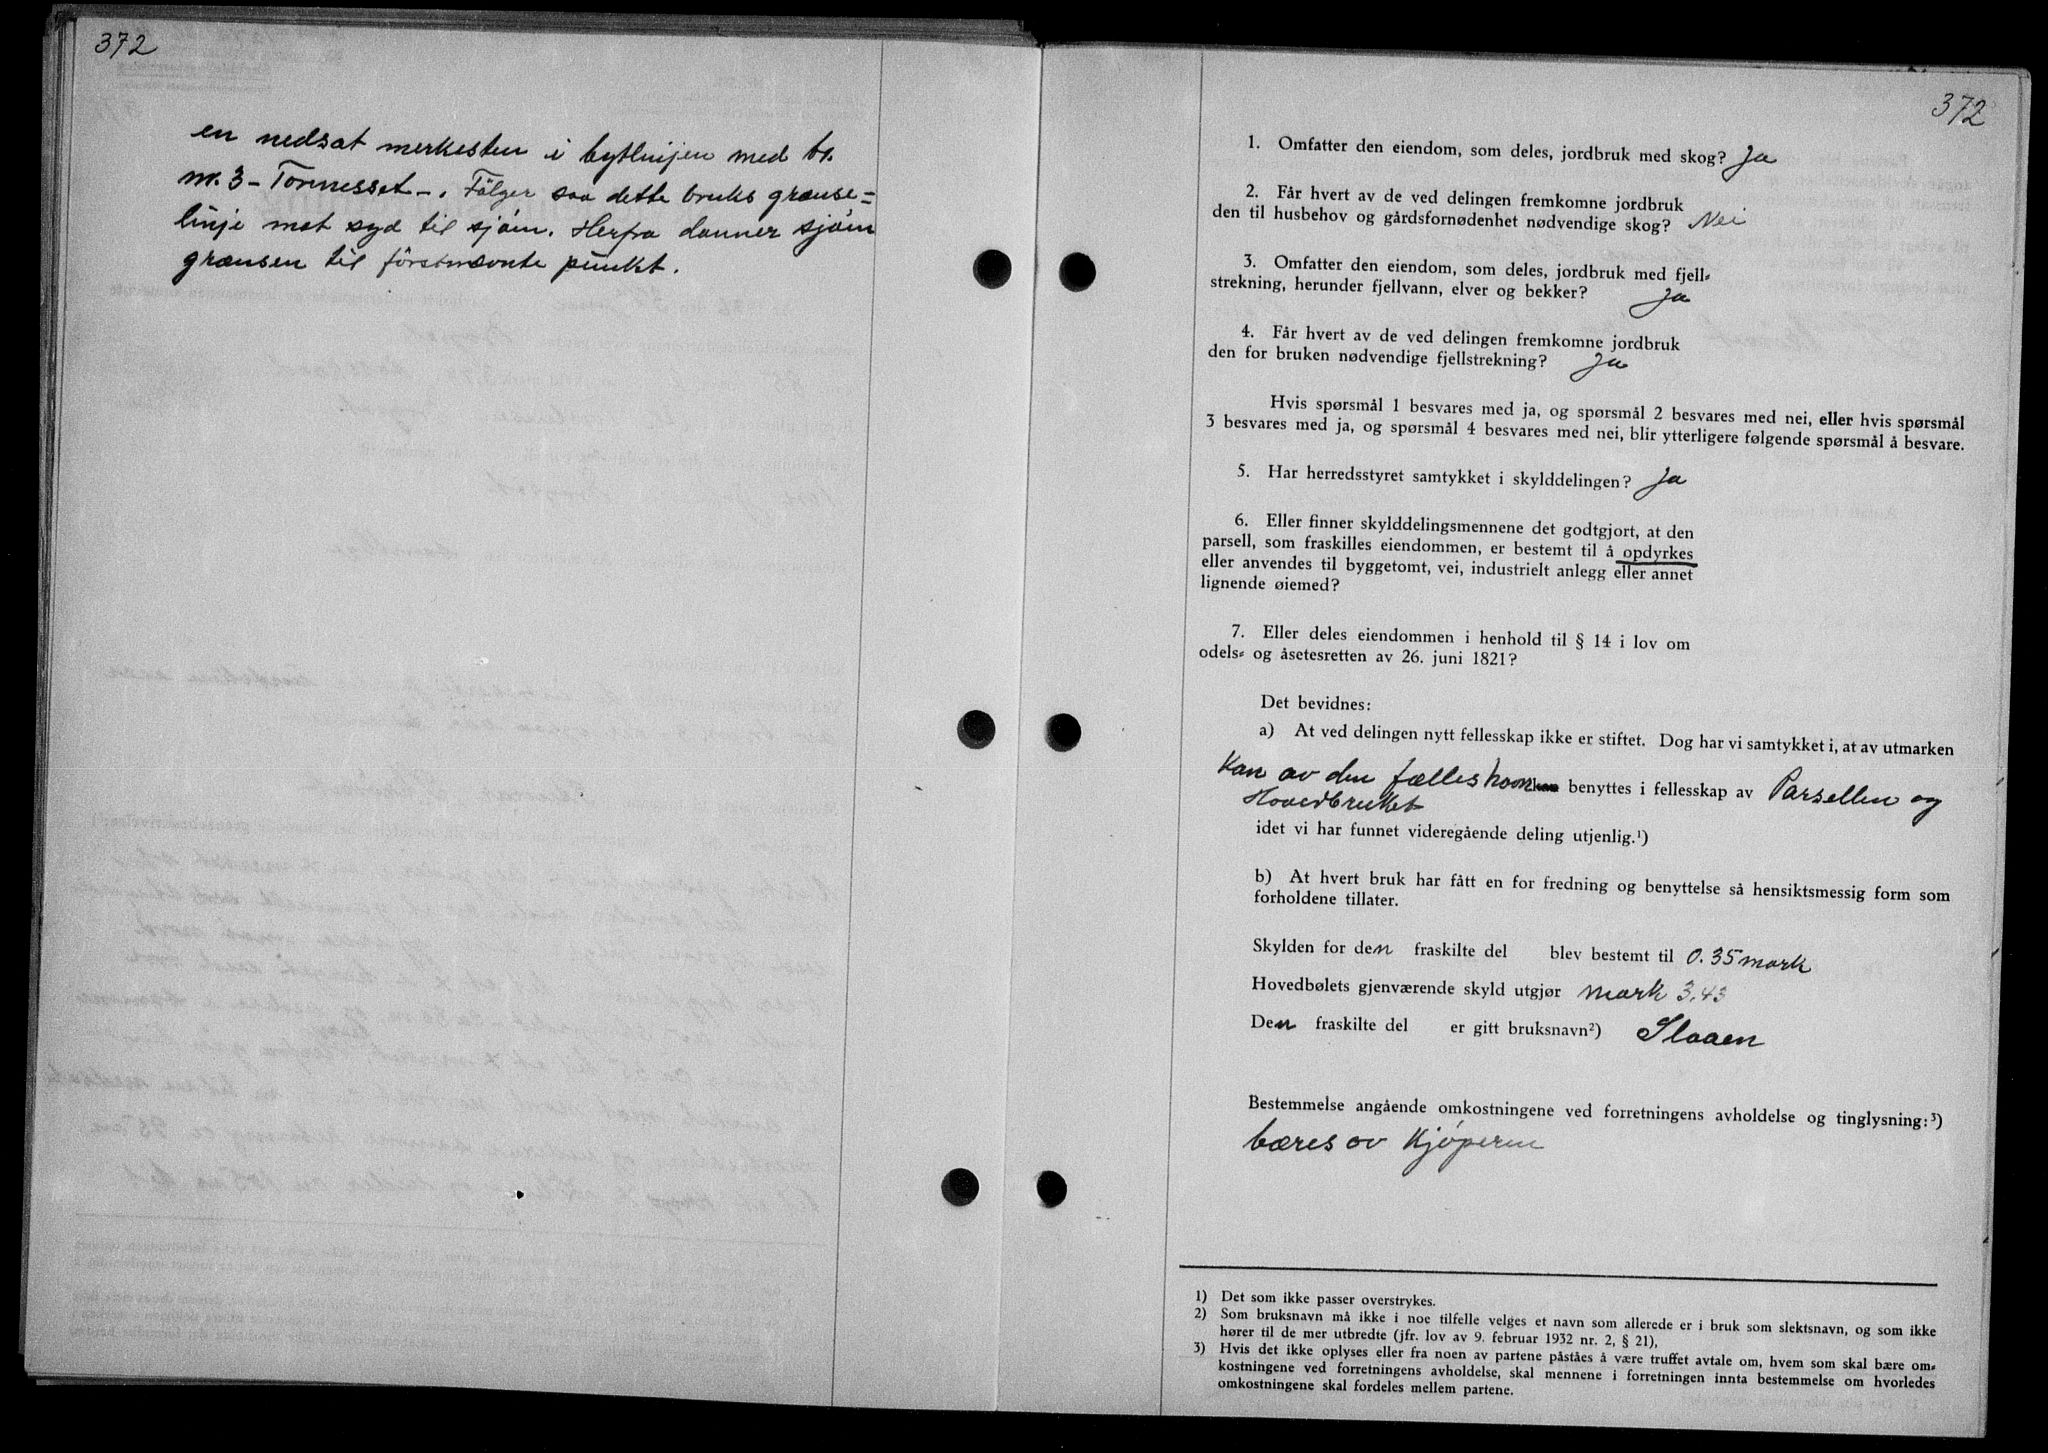 372
en nedsat merkesten i bytlinjen med br.
nr. 3 - Tornesset -. Følger saa dette bruks grænse=
linje mot syd til sjøin. Herfra danner sjøin
grænsen til förstnævnte punkt.
372
1. Omfatter den eiendom, som deles, jordbruk med skog? Ja
2. Får hvert av de ved delingen fremkomne jordbruk
den til husbehov og gårdsfornødenhet nødvendige skog? Nei
3. Omfatter den eiendom, som deles, jordbruk med fjell=
strekning, herunder fjellvann, elver og bekker? Ja
4. Får hvert av de ved delingen fremkomne jordbruk
den for bruken nødvendige fjellstrekning? Ja
Hvis spørsmål 1 besvares med ja, og spørsmål 2 besvares med nei, eller hvis spørsmål
3 besvares med ja, og spørsmål 4 besvares med nei, blir ytterligere følgende spørsmål å besvare.
5. Har herredsstyret samtykket i skylddelingen? Ja
6. Eller finner skylddelingsmennene det godtgjort, at den
parsell, som fraskilles eiendommen, er bestemt til å opdyrkes
eller anvendes til byggetomt, vei, industrielt anlegg eller annet
lignende øiemed?
7. Eller deles eiendommen i henhold til § 14 i lov om
odels= og åsetesretten av 26. juni 1821?
Det bevidnes:
a) At ved delingen nytt fellesskap ikke er stiftet. Dog har vi samtykket i, at av utmarken
Kan av den fælles havn benyttes i fellesskap av Parsellen og
Hovedbruket
idet vi har funnet videregående deling utjenlig.¹)
b) At hvert bruk har fått en for fredning og benyttelse så hensiktsmessig form som
forholdene tillater.
Skylden for den fraskilte del blev bestemt til 0.35 mark
Hovedbølets gjenværende skyld utgjør mark 3.43
Den fraskilte del er gitt bruksnavn²) Slaaen
Bestemmelse angående omkostningene ved forretningens avholdelse og tinglysning:³)
bæres av Kjøperen
1) Det som ikke passer overstrykes.
2) Som bruksnavn må ikke i noe tilfelle velges et navn som allerede er i bruk som slektsnavn, og som ikke
hører til de mer utbredte (jfr. lov av 9. februar 1932 nr. 2, § 21),
3) Hvis det ikke oplyses eller fra noen av partene påståes å være truffet avtale om, hvem som skal bære om=
kostningene ved forretningens avholdelse, skal mennene i forretningen innta bestemmelse om hvorledes
omkostningene skal fordeles mellem partene.